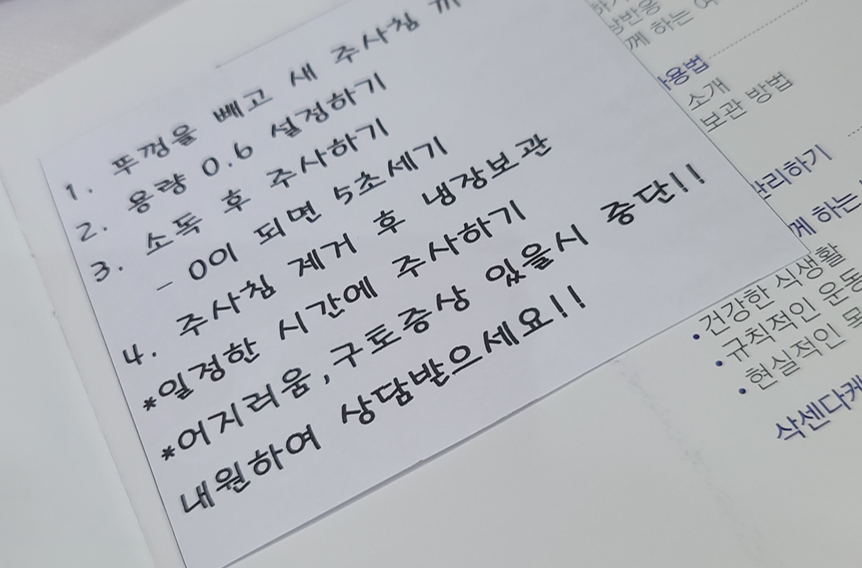 1. 뚜껑을 빼고 새 주사침
2. 용량 0.6 설정하기
3. 소독 후 주사하기
- 0이 되면 5초세기
4. 주사침 제거 후 냉장보관
*일정한 시간에 주사하기
*어지러움, 구토증상 있을시 중단!!
내원하여 상담받으세요!!
께 하는
사용법
소개
보관 방법
관리하기
께 하는
•건강한 식생활
•규칙적인 운동
•현실적인
삭센다케